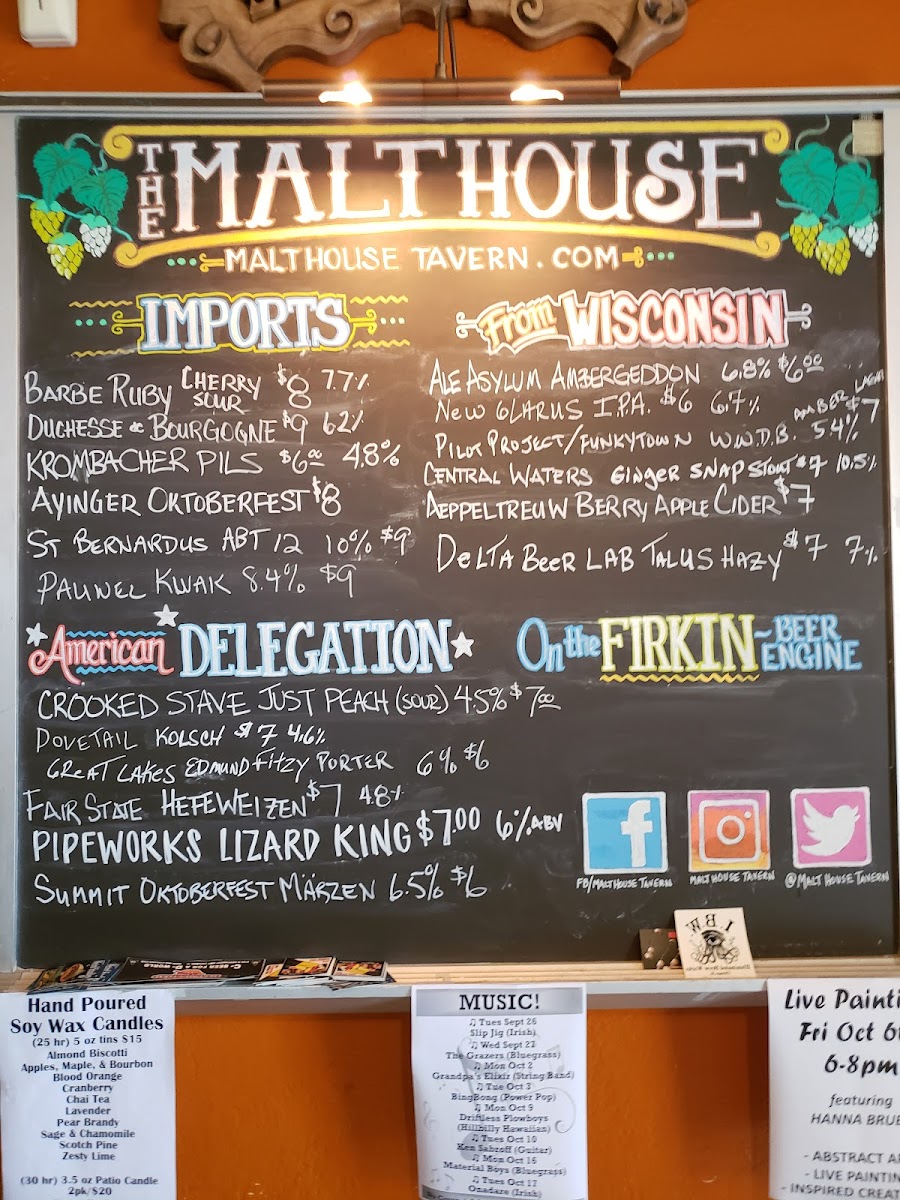 THE MALT HOUSE
MALTHOUSE TAVERN.COM
IMPORTS
BARBE RUBY CHERRY SOUR $8 7.7%
DUCHESSE de BOURGOGNE $9 6.2%
KROMBACHER PILS $6.00 4.8%
AYINGER OKTOBERFEST $8
ST BERNARDUS ABT 12 10% $9
PAUWEL KWAK 8.4% $9
From WISCONSIN
ALE ASYLUM AMBERGEDDON 6.8% $6.00
NEW GLARUS I.P.A. $6 6.7%
PILOT PROJECT/FUNKYTOWN W.W.D.B. AMBER LAGER 5.4% $7
CENTRAL WATERS GINGER SNAP STOUT $7 10.5%
AEPPELTREUW BERRY APPLE CIDER $7
DELTA BEER LAB TALUS HAZY $7 7%
American DELEGATION
CROOKED STAVE JUST PEACH (SOUR) 4.5% $7.00
DOVETAIL KOLSCH $7 4.6%
GREAT LAKES EDMUND FITZY PORTER 6% $6
FAIR STATE HEFEWEIZEN $7 4.8%
PIPEWORKS LIZARD KING $7.00 6% ABV
SUMMIT OKTOBERFEST MÄRZEN 6.5% $6
On the FIRKIN ~ BEER ENGINE
FB/MALTHOUSE TAVERN
MALTHOUSE TAVERN
@MALT HOUSE TAVERN
I.B.W.
Hand Poured
Soy Wax Candles
(25 hr) 5 oz tins $15
Almond Biscotti
Apples, Maple, & Bourbon
Blood Orange
Cranberry
Chai Tea
Lavender
Pear Brandy
Sage & Chamomile
Scotch Pine
Zesty Lime
(30 hr) 3.5 oz Patio Candle
2pk/$20
MUSIC!
♫ Tues Sept 26
Slip Jig (Irish)
♫ Wed Sept 27
The Grazers (Bluegrass)
♫ Mon Oct 2
Grandpa's Elixir (String Band)
♫ Tue Oct 3
BingBong (Power Pop)
♫ Mon Oct 9
Driftless Plowboys
(Hillbilly Hawaiian)
♫ Tues Oct 10
Ken Sabroff (Guitar)
♫ Mon Oct 16
Material Boys (Bluegrass)
♫ Tues Oct 17
Onadare (Irish)
Live Painti
Fri Oct 6
6-8pm
featuring
HANNA BRUE
- ABSTRACT A
- LIVE PAINTIN
- INSPIRED CREAT